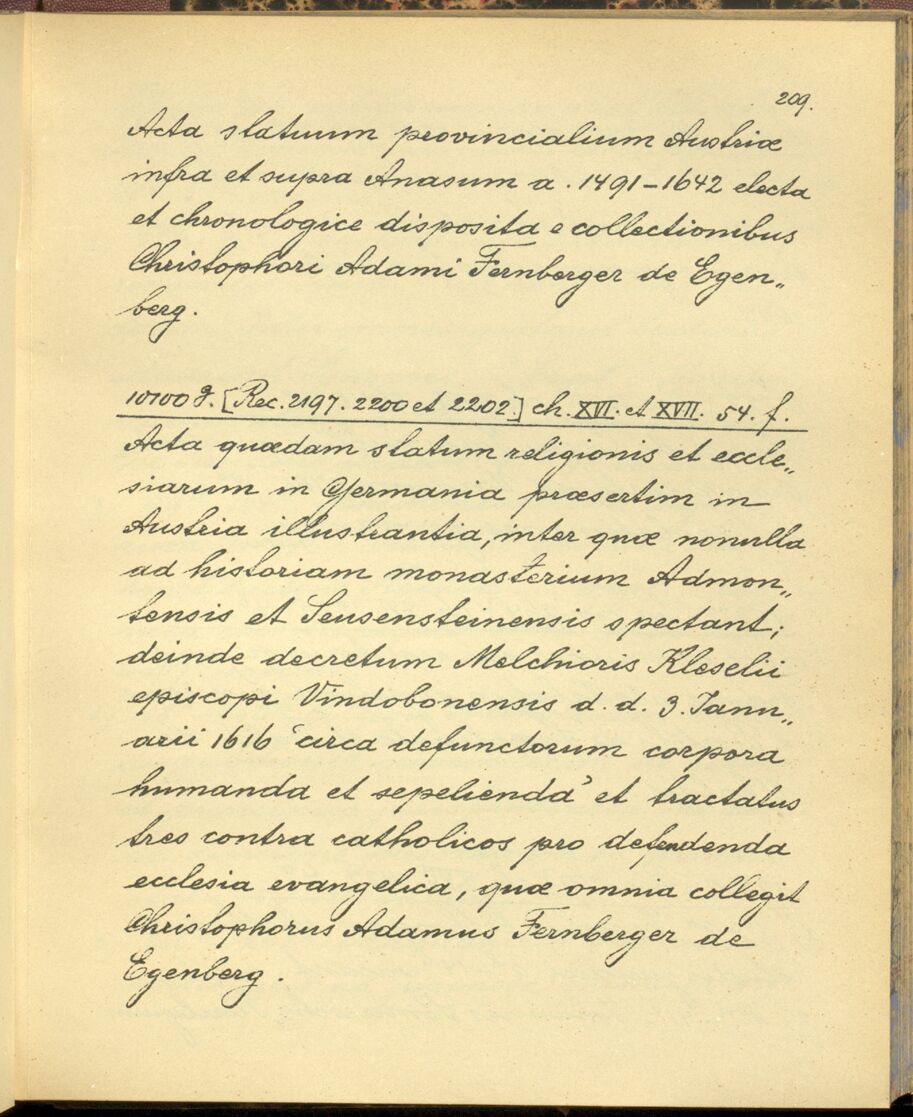 209.
Acta statuum provincialium Austriæ
infra et supra Anasum a. 1491-1642 electa
et chronologice disposita e collectionibus
Christophori Adami Fernberger de Egen„
berg.
10100 g. [Rec. 2197. 2200 et 2202.] ch. XVI. et XVII. 54. f.
Acta quædam statum religionis et eccle„
siarum in Germania præsertim in
Austria illustrantia, inter quæ nonnulla
ad historiam monasterium Admon„
tensis et Seusensteinensis spectant;
deinde decretum Melchioris Kleselii
episcopi Vindobonensis d. d. 3. Janu„
arii 1616 ‘circa defunctorum corpora
humanda et sepelienda’ et tractatus
tres contra catholicos pro defendenda
ecclesia evangelica, quæ omnia collegit
Christophorus Adamus Fernberger de
Egenberg.